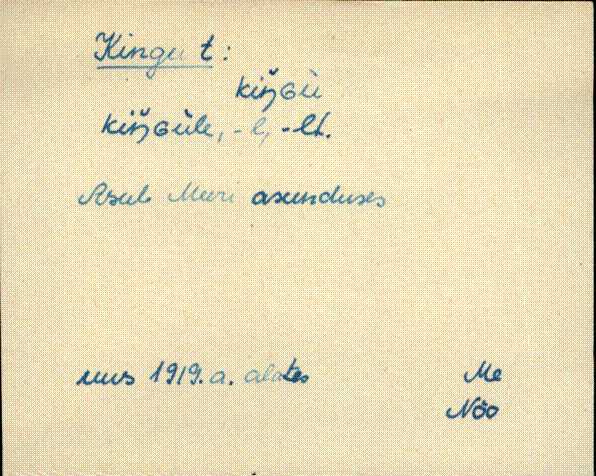 Kingu t:
kiŋ̆Gù
kiŋ̆Gùle, -l, -lt.
Asub Meeri asunduses
uus 1919. a. alates
Me
Nõo